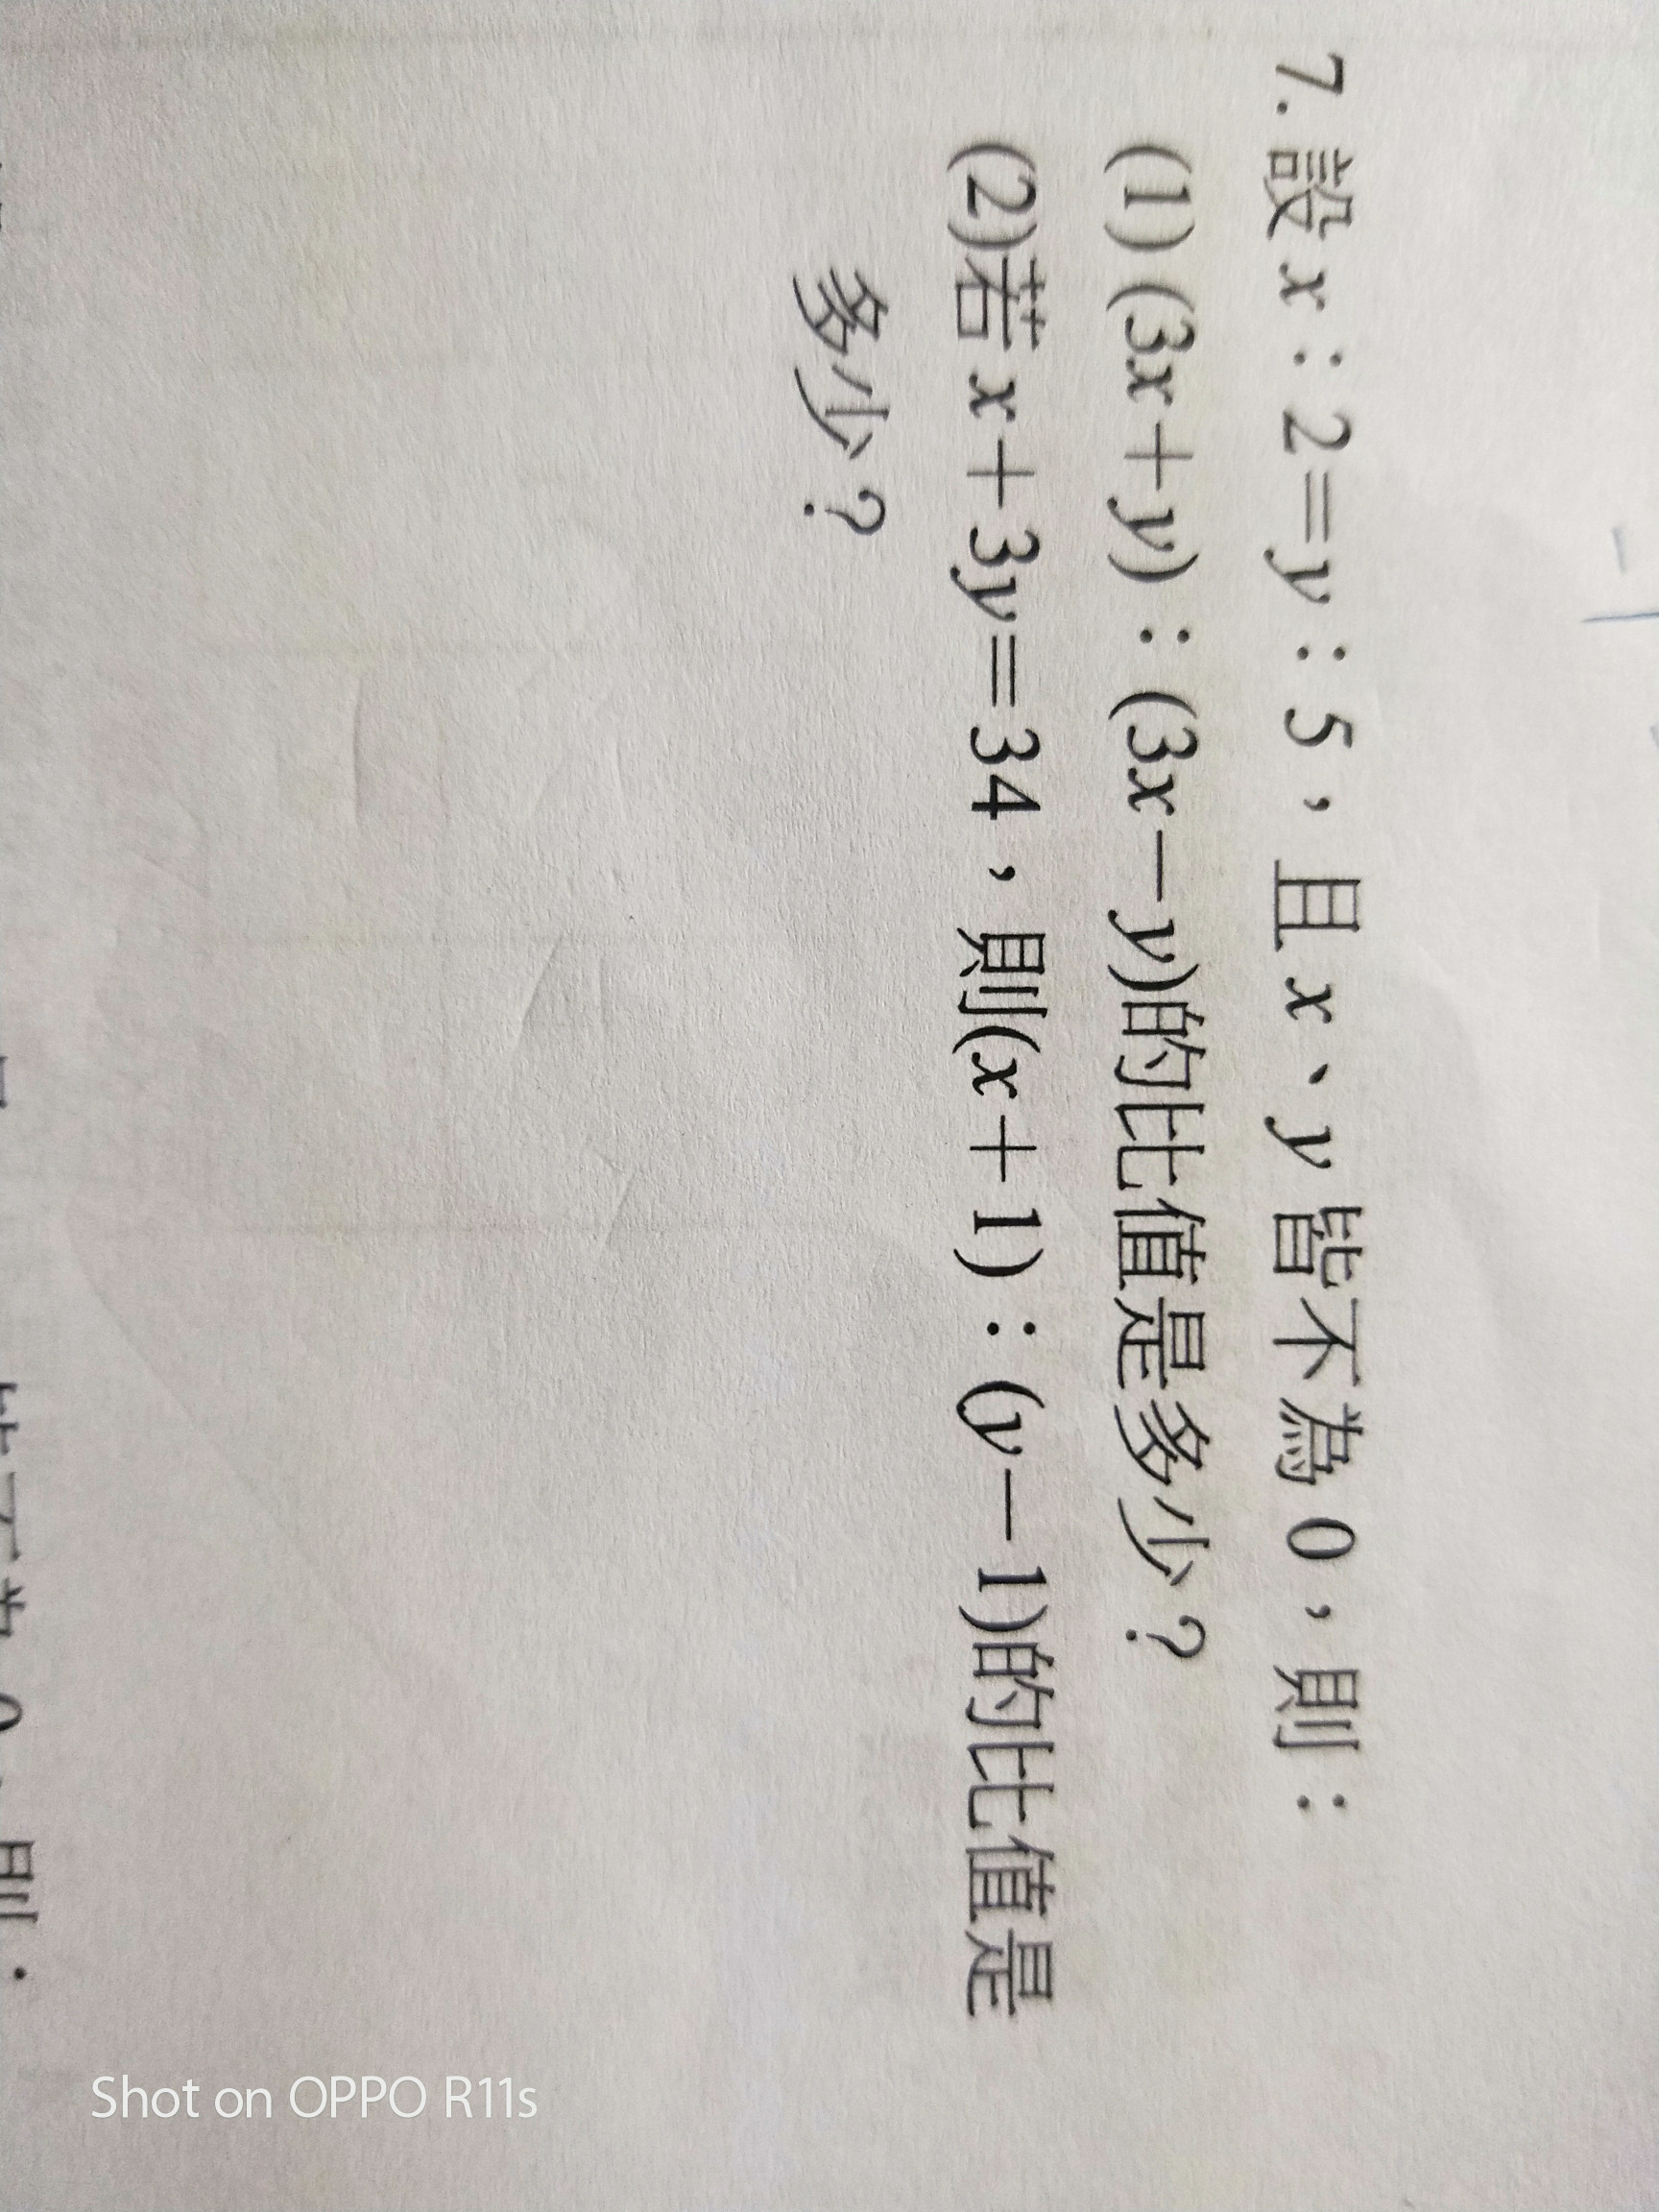 7. 設 x：2=y：5，且 x、y 皆不為 0，則：
(1) (3x+y)：(3x-y)的比值是多少？
(2)若 x+3y=34，則(x+1)：(y-1)的比值是
多少？
Shot on OPPO R11s